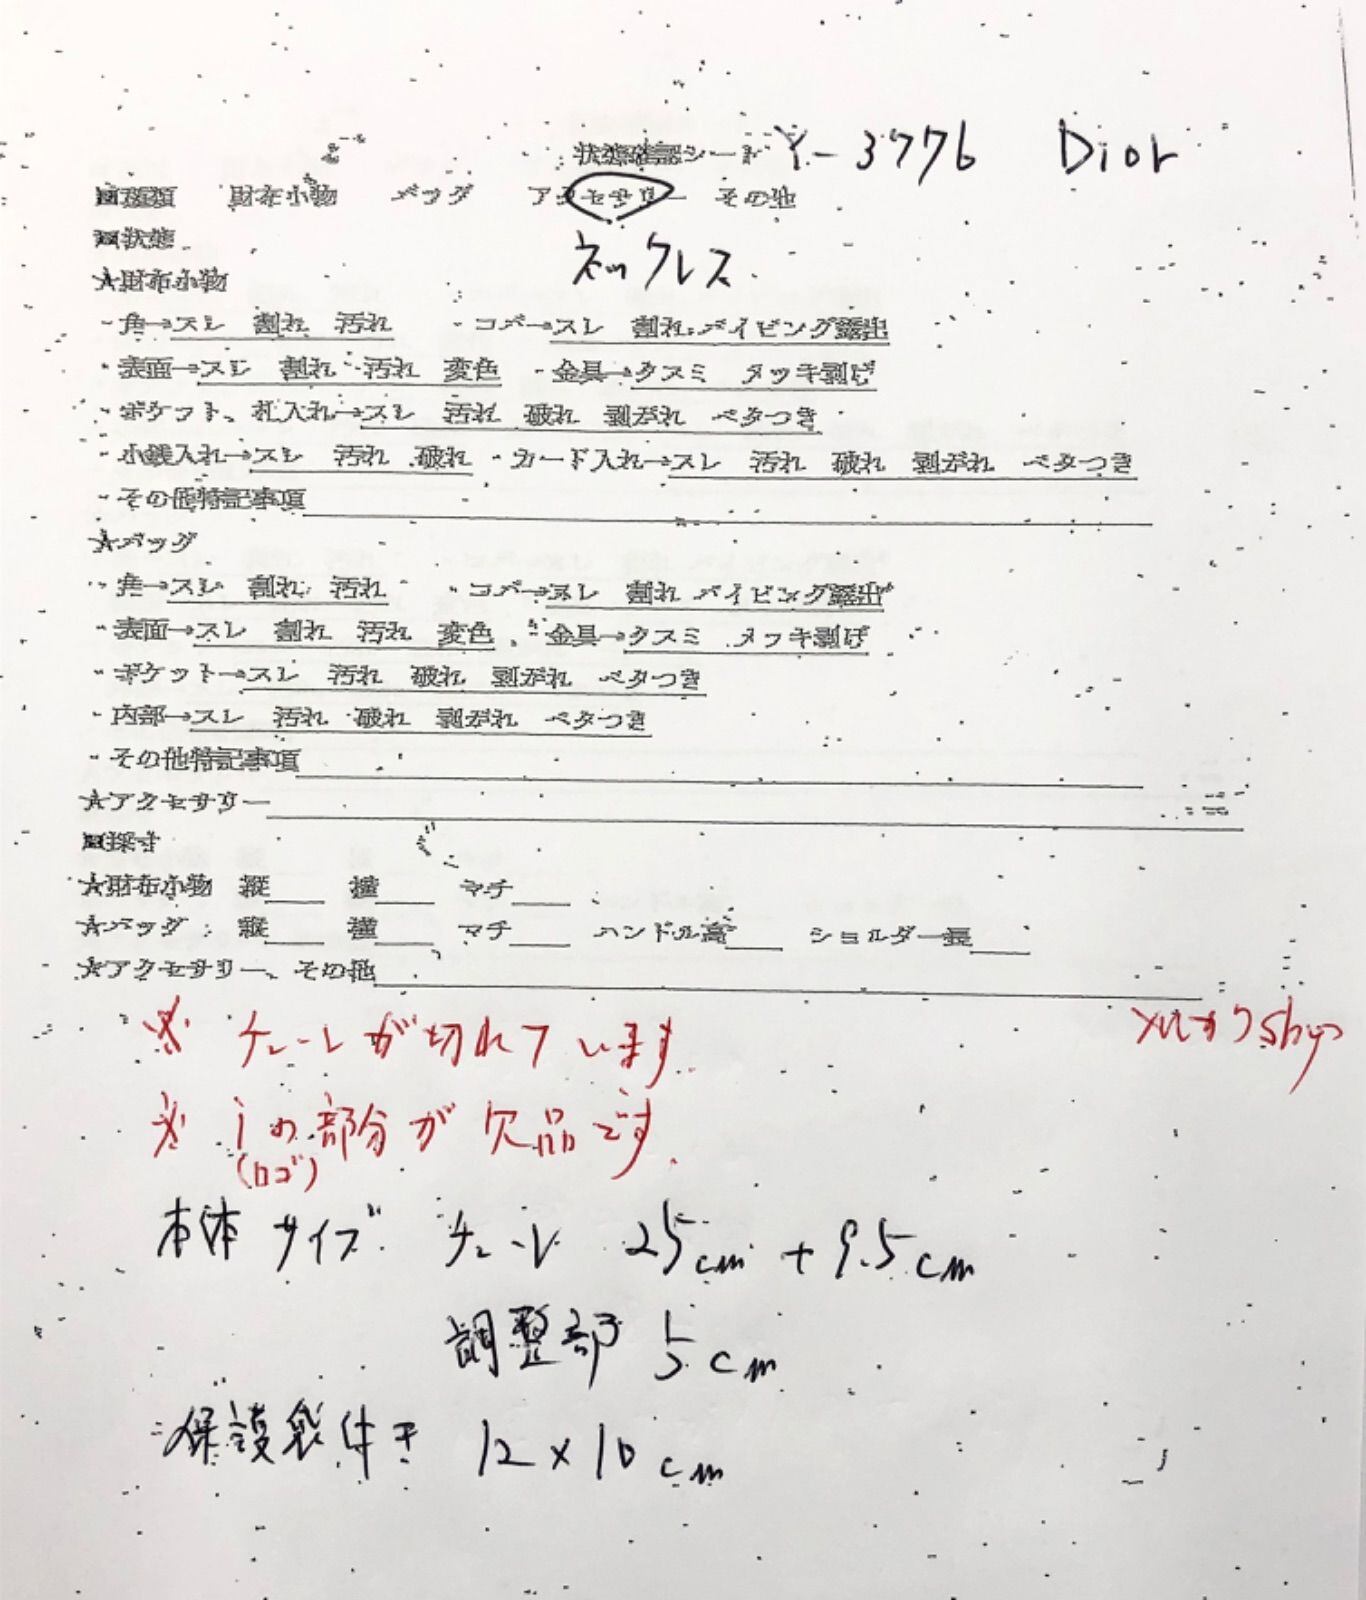 状態確認シート Y-3776 Dior
■種類 財布小物 バッグ アクセサリー その他
■状態
ネックレス
★財布小物
・角→スレ 割れ 汚れ ・コバ→スレ 割れ パイピング露出
・表面→スレ 割れ 汚れ 変色 ・金具→クスミ メッキ剥げ
・ポケット、札入れ→スレ 汚れ 破れ 剥がれ ベタつき
・小銭入れ→スレ 汚れ 破れ ・カード入れ→スレ 汚れ 破れ 剥がれ ベタつき
・その他特記事項
★バッグ
・角→スレ 割れ 汚れ ・コバ→スレ 割れ パイピング露出
・表面→スレ 割れ 汚れ 変色 ・金具→クスミ メッキ剥げ
・ポケット→スレ 汚れ 破れ 剥がれ ベタつき
・内部→スレ 汚れ 破れ 剥がれ ベタつき
・その他特記事項
★アクセサリー
■採寸
★財布小物 縦 横 マチ
★バッグ 縦 横 マチ ハンドル高 ショルダー長
★アクセサリー、その他
※ チェーンが切れています
※ iの部分が欠品です
(ロゴ)
本体サイズ チェーン 25cm + 9.5cm
調整部 5cm
保護袋付き 12×10cm